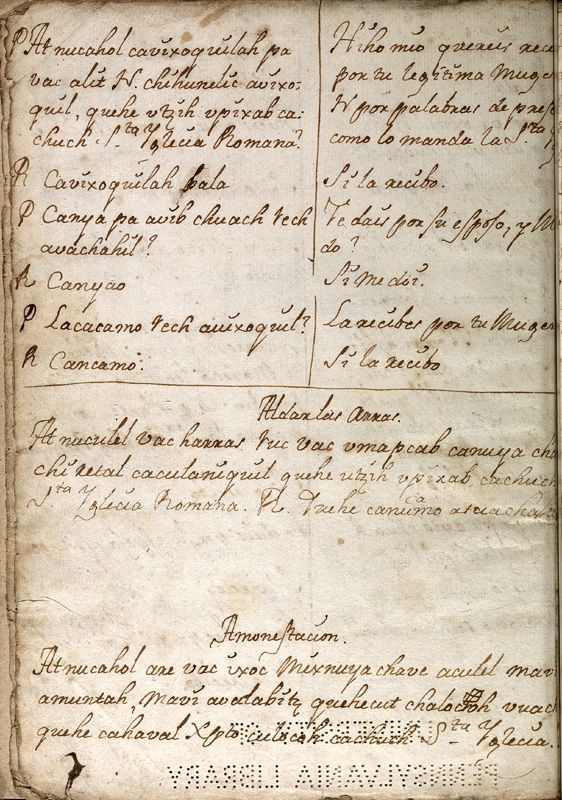 P At nucahol cavixoquilah pa
vac alit N. chihunelic avixo-
quil, quehe vtzih vpixab ca-
chuch S.ta Yglecia Romana?
R Cavixoquilah pala
P Canya pa avib chuach rech
avachahil?
R Canyao
P Lacacamo rech avixoquil?
R Cancamo.
Hiho mio quereis reci
por tu legitima Muger
N por palabras de pres
como lo manda la S.ta Y
Si la recibo.
Te dais por su esposo, y M
do?
Si me doi.
La recibes por tu Muger
Si la recibo
Al dar las Arras.
At nuculel vac harras ruc vac vmapcab canuya cha
chiretal caculaniquil quehe utzih vpixab cachuch
S.ta Yglecia Romana. R. Quehe canucamo
Amonestacion.
At nucahol are vac ixoc Mixnuya chave aculel mavi
amuntah, Mavi avalabitz quehecut chalocoh vuach
quehe cahaval Xpto culocoh cachuch S.ta Yglecia.
UNIVERSITY OF
PENNSYLVANIA LIBRARY